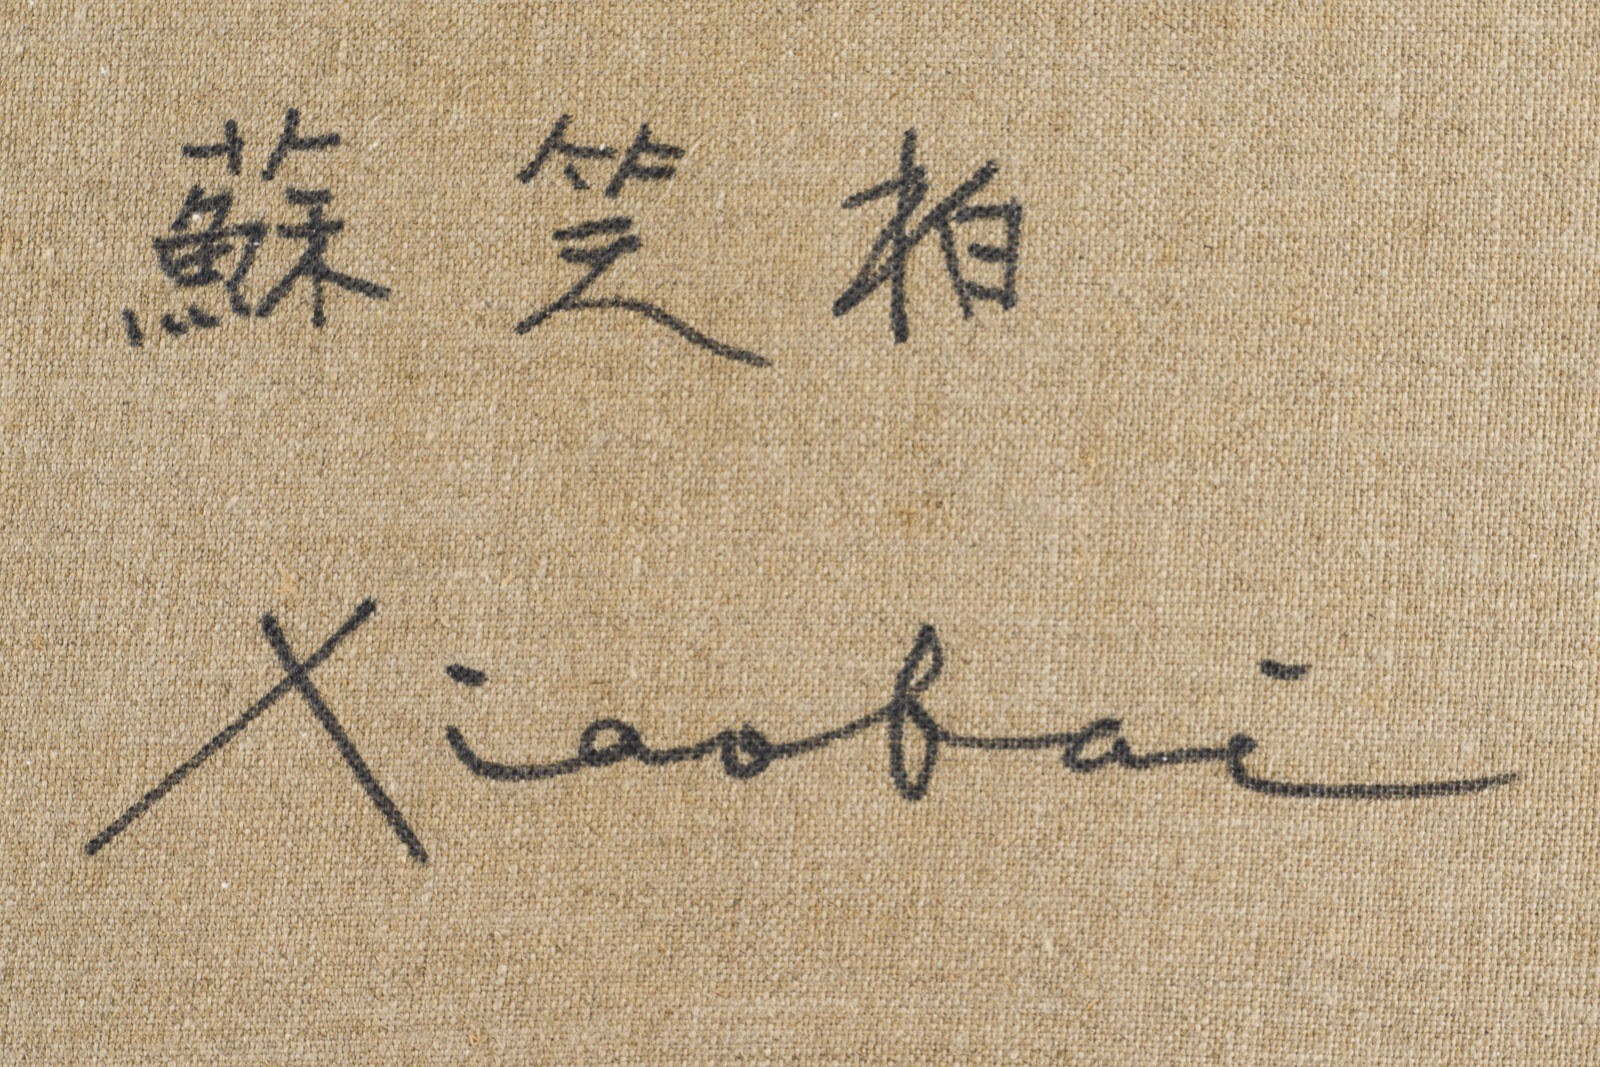 蘇笑柏
Xiaobai